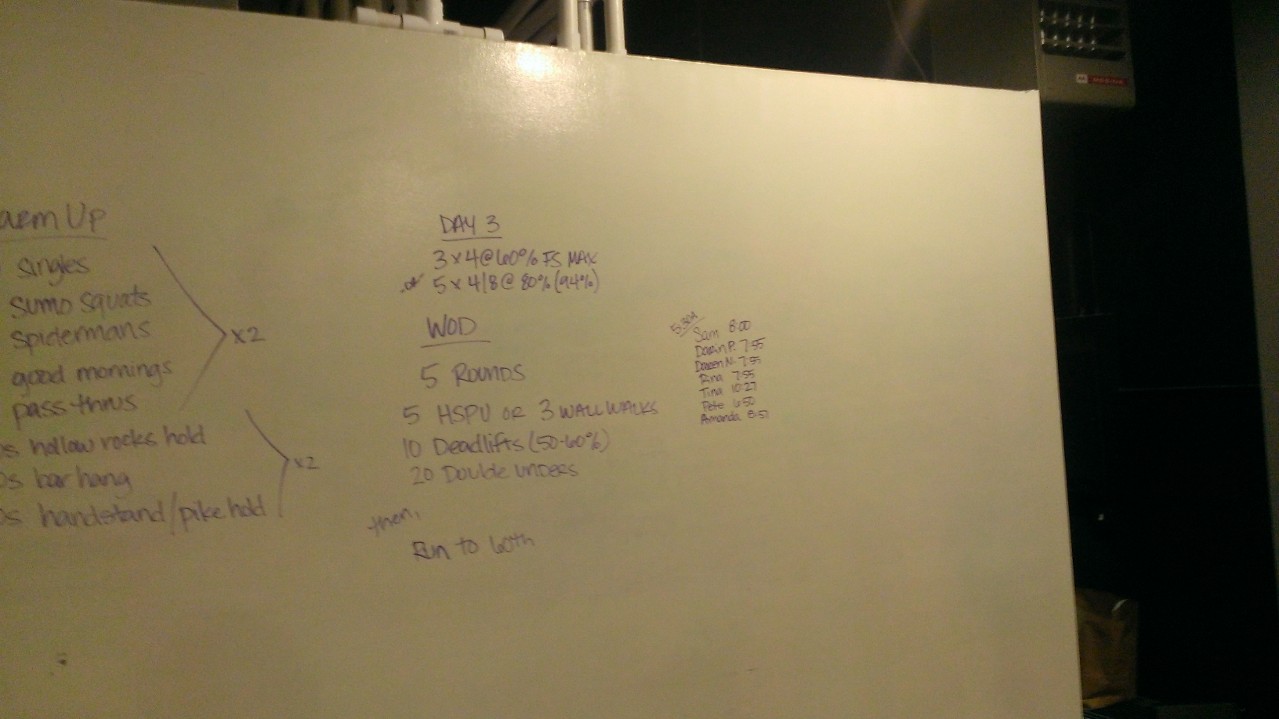 arm Up
singles
sumo squats
spidermans
good mornings
pass thrus
x2
s hollow rocks hold
0s bar hang
0s handstand/pike hold
x2
DAY 3
3 x 4 @ 60% FS MAX
or 5 x 4/8 @ 80% (94%)
WOD
5 ROUNDS
5 HSPU OR 3 WALL WALKS
10 Deadlifts (50-60%)
20 Double UNDERS
then,
Run to 60th
5:30A
Sam 8:00
Darin P. 7:55
Dareen N. 7:55
Rina 7:55
Tina 10:27
Pete 6:50
Amanda 8:57